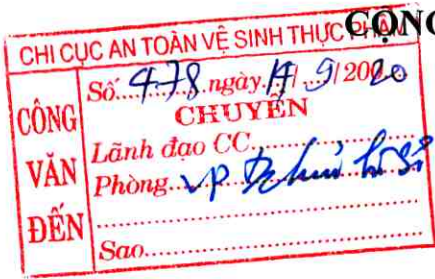 CỘNG
CHI CỤC AN TOÀN VỆ SINH THỰC PHẨM
CÔNG VĂN ĐẾN
Số 478 ngày 14/9/2020
CHUYỂN
Lãnh đạo CC
Phòng VP
Sao